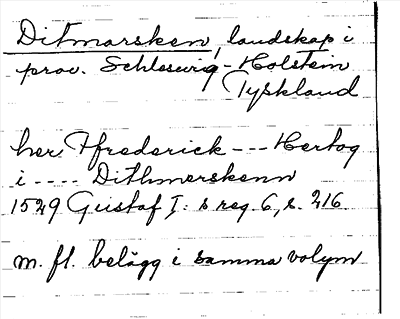 Ditmarsken, landskap i
prov. Schleswig-Holstein
Tyskland
her Ffrederick --- Hertog
i ---- Dithmerskenn
1529 Gustaf I:s reg. 6, s. 216
m. fl. belägg i samma volym